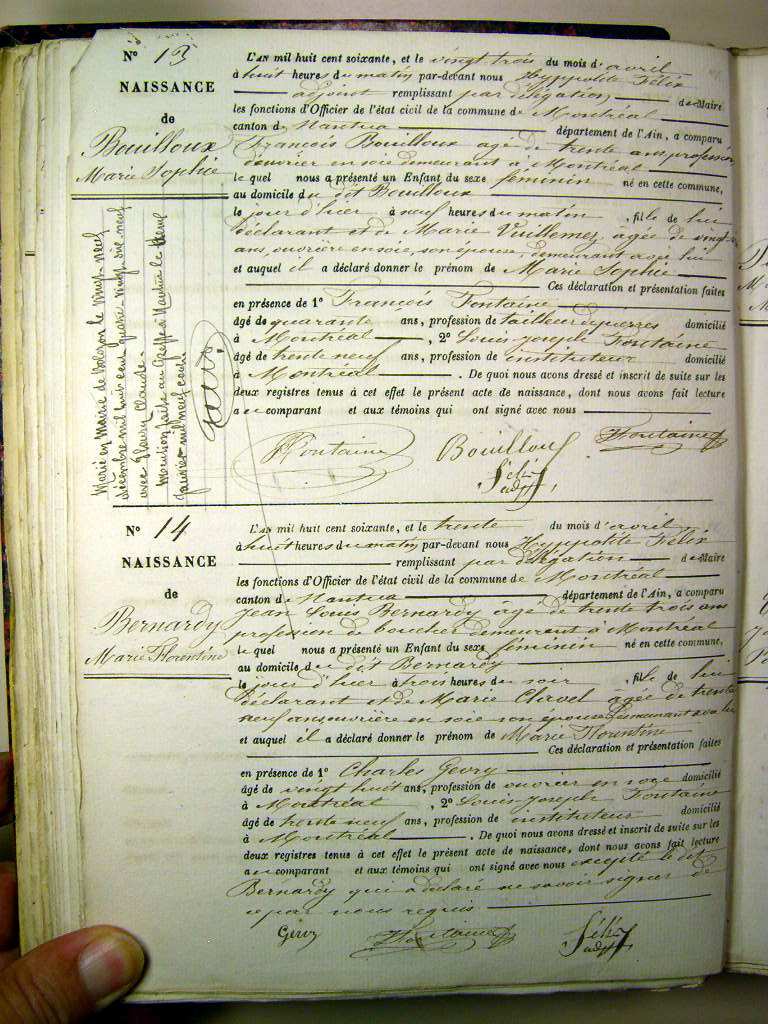 N° 13
NAISSANCE
de
Bouilloux
Marie Sophie
Marié en Mairie de Bolozon le vingt neuf
décembre mil huit cent quatre vingt dix neuf
avec Fleury Claude.
Mention faite au Greffe à Nantua le
janvier mil neuf cent
L'AN mil huit cent soixante, et le vingt trois du mois d'avril
à huit heures du matin par-devant nous Hyppolite Félix
adjoint remplissant par délégation de Maire
les fonctions d'Officier de l'état civil de la commune de Montréal
canton de Nantua département de l'Ain, a comparu
François Bouilloux agé de trente ans profession
d'ouvrier en soie demeurant à Montréal
le quel nous a présenté un Enfant du sexe féminin né en cette commune,
au domicile du dit Bouilloux
le jour d'hier à neuf heures du matin, fille de lui
déclarant et de Marie Vuillemez, agée de vingt
ans, ouvrière en soie, son épouse, demeurant avec lui
et auquel il a déclaré donner le prénom de Marie Sophie
Ces déclaration et présentation faites
en présence de 1° François Fontaine
âgé de quarante ans, profession de tailleur de pierres domicilié
à Montréal, 2° Louis Joseph Fontaine
âgé de trente neuf ans, profession de instituteur domicilié
à Montréal. De quoi nous avons dressé et inscrit de suite sur les
deux registres tenus à cet effet le présent acte de naissance, dont nous avons fait lecture
a u comparant et aux témoins qui ont signé avec nous
Fontaine Bouilloux Fontaine
Félix
adjt
N° 14
NAISSANCE
de
Bernardy
Marie Florentine
L'AN mil huit cent soixante, et le trente du mois d'avril
à huit heures du matin par-devant nous Hyppolite Félix
remplissant par délégation de Maire
les fonctions d'Officier de l'état civil de la commune de Montréal
canton de Nantua département de l'Ain, a comparu
Jean Louis Bernardy âgé de trente trois ans
profession de boucher demeurant à Montréal
le quel nous a présenté un Enfant du sexe féminin né en cette commune,
au domicile du dit Bernardy
le jour d'hier à trois heures du soir, fille de lui
déclarant et de Marie Clavel âgée de trente
neuf ans ouvrière en soie son épouse demeurant avec lui
et auquel il a déclaré donner le prénom de Marie Florentine
Ces déclaration et présentation faites
en présence de 1° Charles Gevry
âgé de vingt huit ans, profession de ouvrier en soie domicilié
à Montréal, 2° Louis Joseph Fontaine
âgé de trente neuf ans, profession de instituteur domicilié
à Montréal. De quoi nous avons dressé et inscrit de suite sur les
deux registres tenus à cet effet le présent acte de naissance, dont nous avons fait lecture
a u comparant et aux témoins qui ont signé avec nous excepté le dit
Bernardy qui a déclaré ne savoir signer de
ce par nous requis
Fontaine Félix
adjt